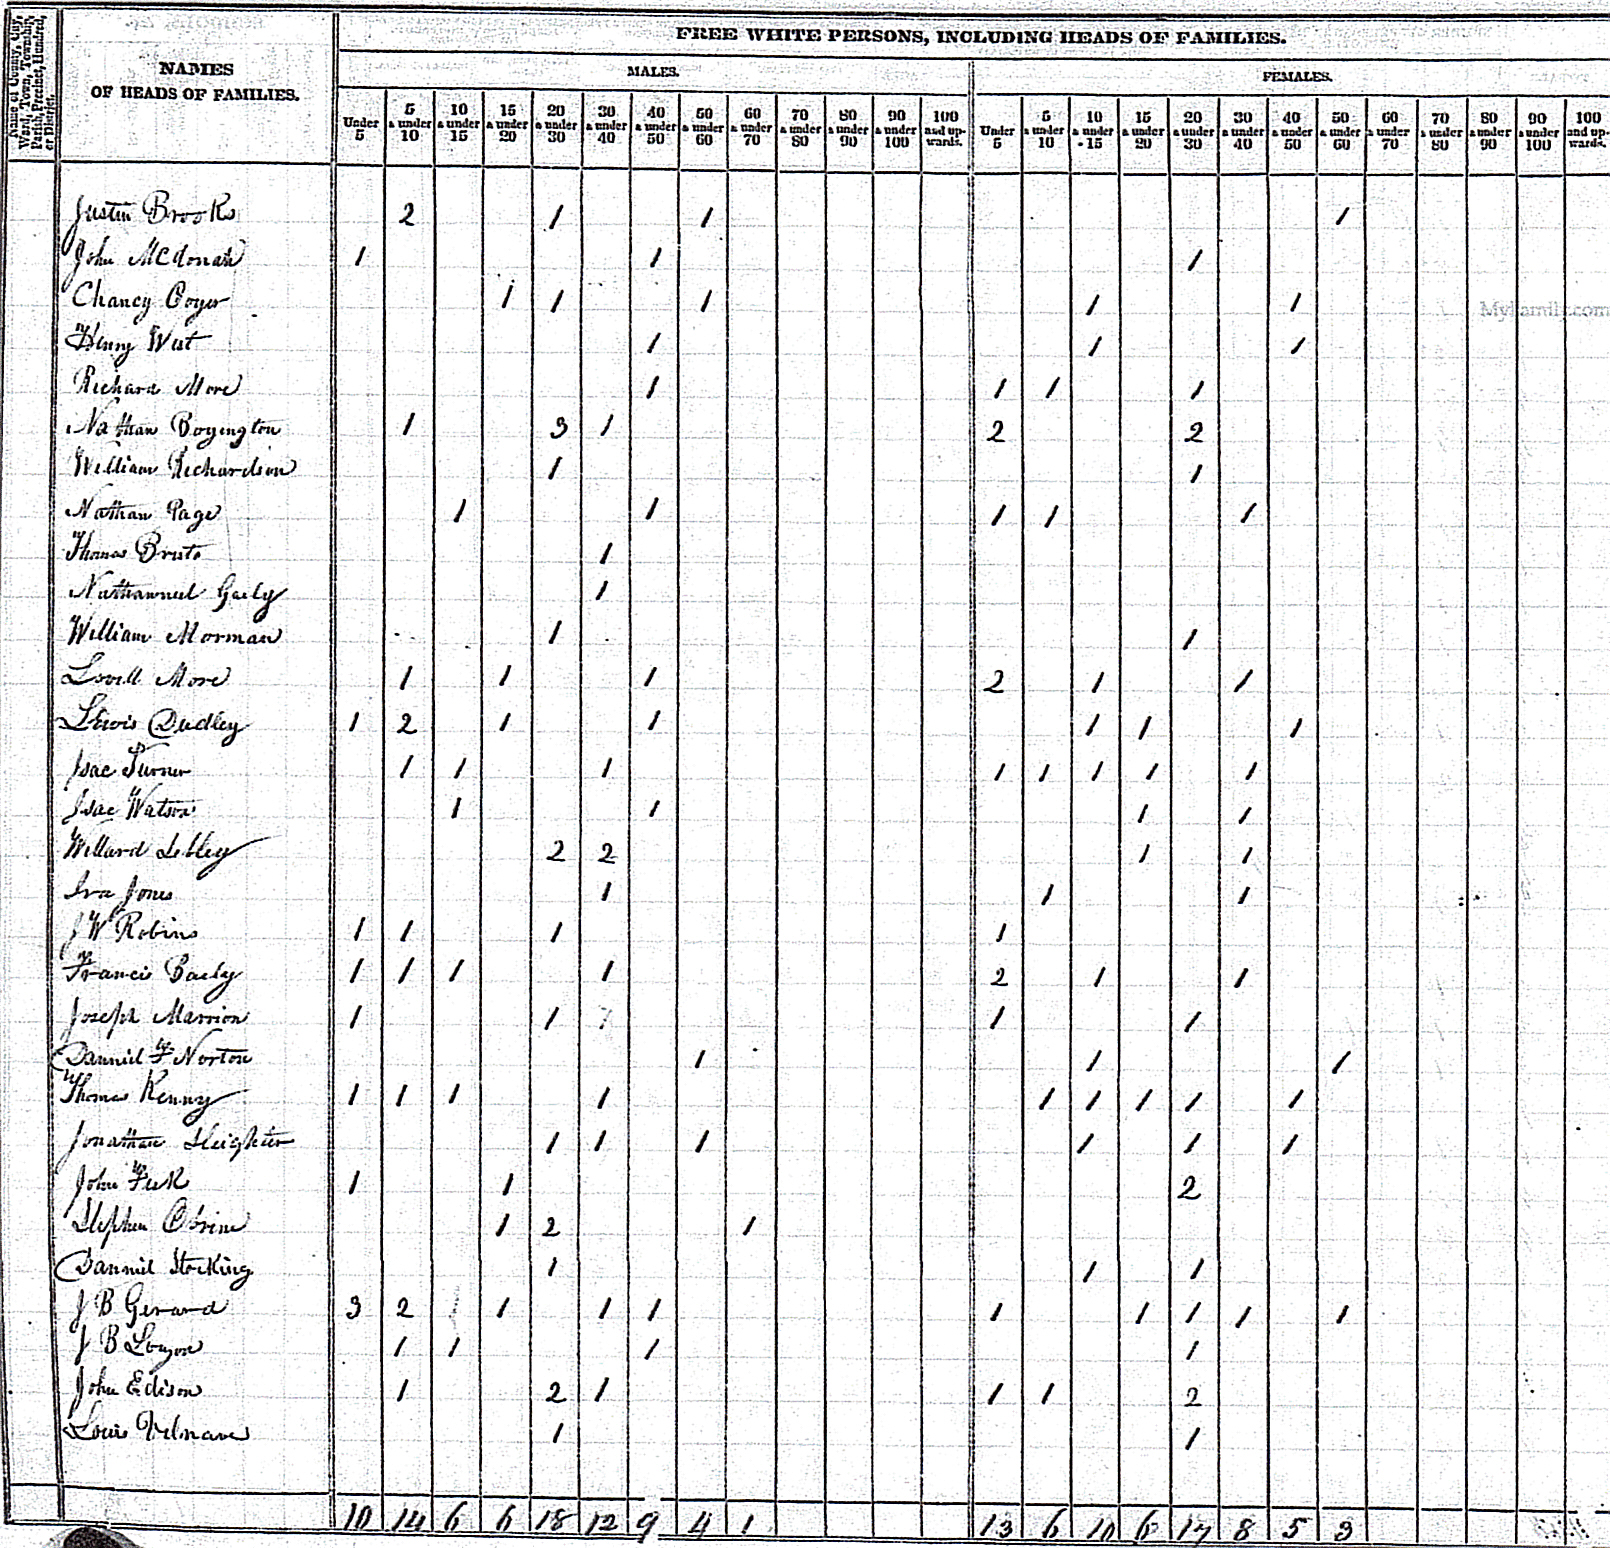 FREE WHITE PERSONS, INCLUDING HEADS OF FAMILIES.
Name of County, City, Ward, Town, Township, Parish, Precinct, Hundred, or District.
NAMES
OF HEADS OF FAMILIES.
MALES. FEMALES.
Under 5 5 & under 10 10 & under 15 15 & under 20 20 & under 30 30 & under 40 40 & under 50 50 & under 60 60 & under 70 70 & under 80 80 & under 90 90 & under 100 100 and upwards. Under 5 5 & under 10 10 & under 15 15 & under 20 20 & under 30 30 & under 40 40 & under 50 50 & under 60 60 & under 70 70 & under 80 80 & under 90 90 & under 100 100 and upwards.
Justin Brooks 2 1 1 1
John McDonah 1 1 1
Chancy 1 1 1 1 1
MyFamily.com
Henry West 1 1 1
Richard More 1 1 1 1
Nathan Boyington 1 3 1 2 2
William Richardson 1 1
Nathan Page 1 1 1 1 1
Thomas 1
Nathanniel 1
William Morman 1 1
Lovell More 1 1 1 2 1 1
Lewis Dudley 1 2 1 1 1 1 1
Isac Turner 1 1 1 1 1 1 1 1
Isac Watson 1 1 1 1
Willard Sibley 2 2 1 1
Ira Jones 1 1 1
J W Robins 1 1 1 1
Francis Baely 1 1 1 1 2 1 1
Joseph Marrion 1 1 1 1
Danniel F Norton 1 1 1
Thomas Kenny 1 1 1 1 1 1 1 1 1
Jonathan Sleighter 1 1 1 1 1 1
John Fisk 1 1 2
Stephen Obrine 1 2 1
Danniel Stocking 1 1 1
J B Gerard 3 2 1 1 1 1 1 1 1 1
J B 1 1 1 1
John Edison 1 2 1 1 1 2
Louis 1 1
10 14 6 6 18 12 9 4 1 13 6 10 6 17 8 5 3